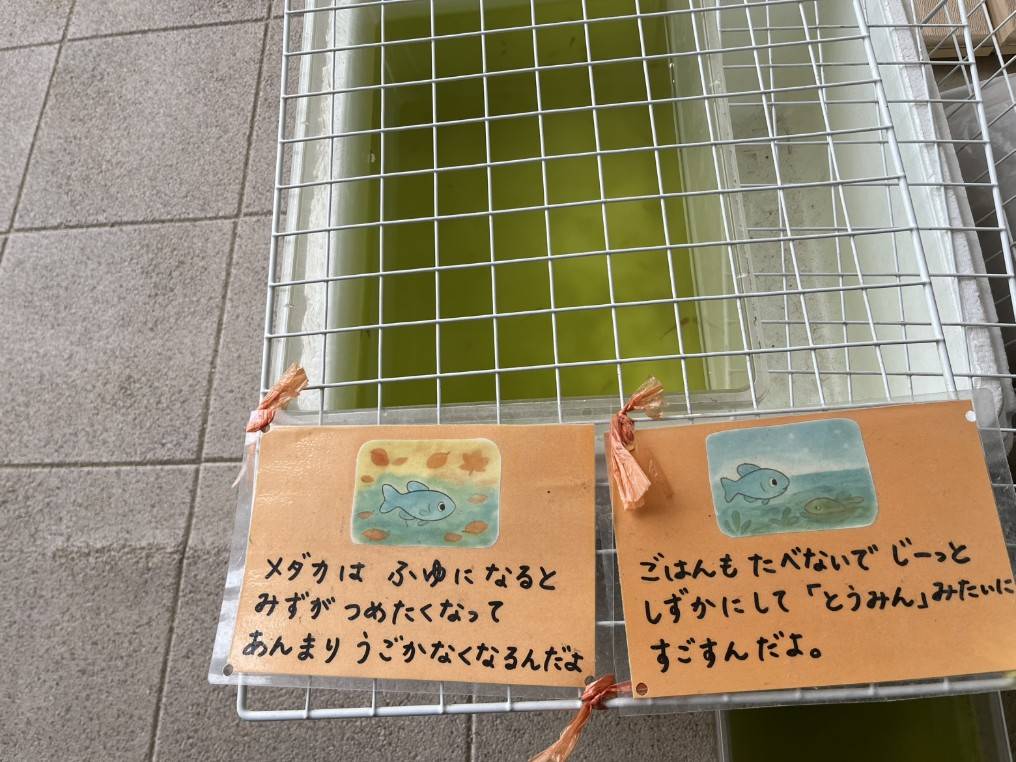 メダカは ふゆになると
みずが つめたくなって
あんまり うごかなくなるんだよ
ごはんも たべないで じーっと
しずかにして「とうみん」みたいに
すごすんだよ。